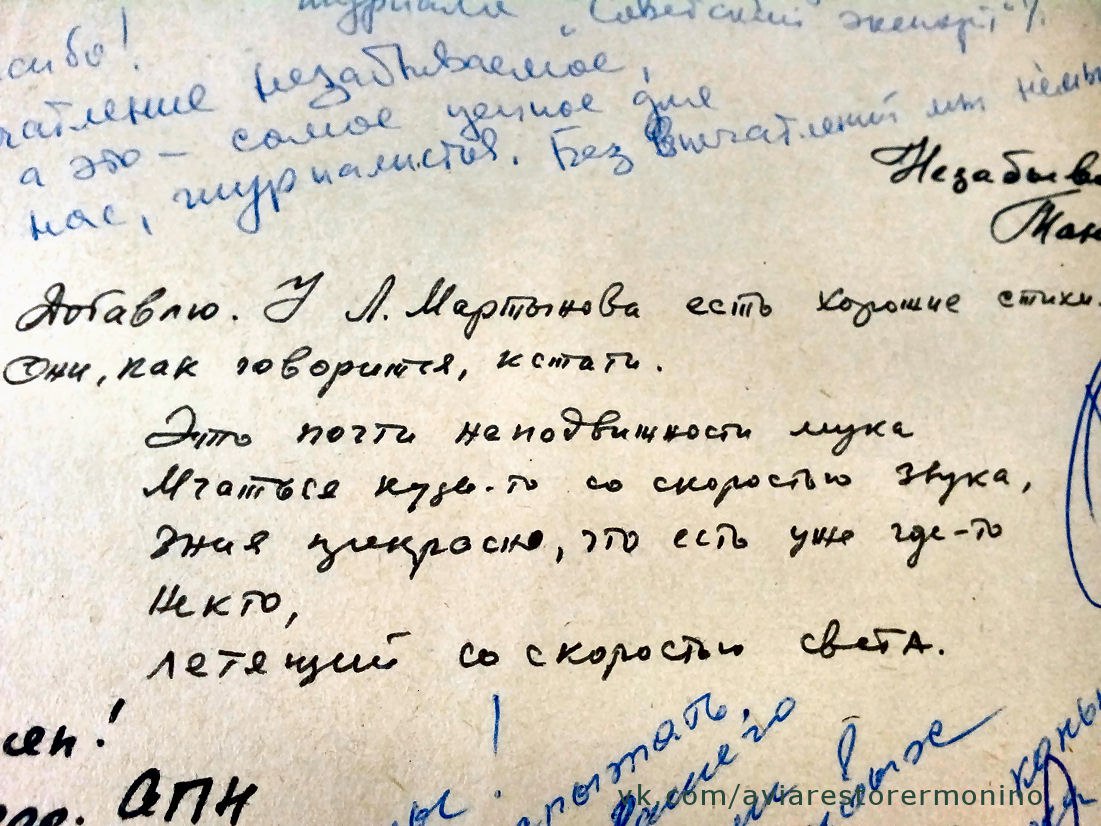 журнала „Советский экспорт"
сибо!
чатление незабываемое,
а это — самое ценное для
нас, журналистов. Без впечатлений мы немы
Незабыва
Добавлю. У Л. Мартынова есть хорошие стихи.
Они, как говорится, кстати.
Это почти неподвижности мука
Мчаться куда-то со скоростью звука,
Зная прекрасно, что есть уже где-то
Некто,
летящий со скоростью света.
сен!
АПН
vk.com/aviarestorermonino